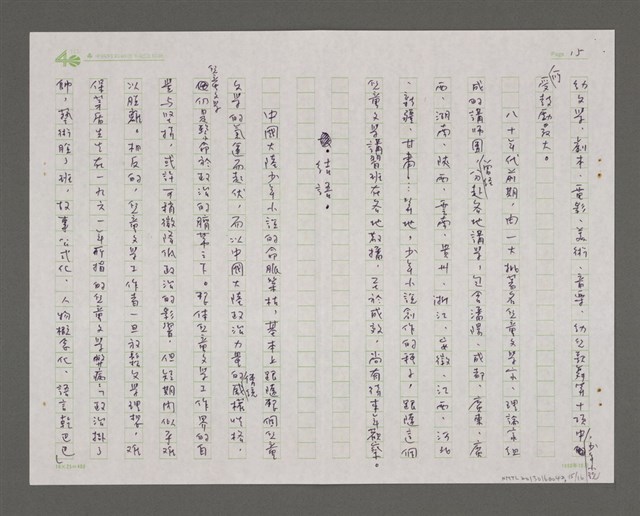 Page 15
幼文學、劇本、電影、美術、音樂、幼兒歌舞等十項中,少年小說
所受鼓勵最大。
八十年代前期,由一大批著名兒童文學家、理論家組
成的講師團,分赴各地講學,包含瀋陽、成都、廣東、廣
西、湖南、陝西、雲南、貴州、浙江、安徽、江西、河北
、新疆、甘肅……等地,少年小說創作的種子,跟隨這個
兒童文學講習班在各地散播,至於成效,尚有待來年觀察。
結語。
中國大陸少年小說的命脈榮枯,基本上跟隨整個兒童
文學的氣運而起伏,而以中國大陸政治力量的威權情況,
兒童文學們是聽命於政治的臍帶之下。整體兒童文學工作界的自
覺与堅持,或許可稍微降低政治的影響,但短期內似乎难
以脫離。相反的,兒童文學工作者一旦放鬆文學理想,难
保茅盾先生在一九六一年所指的兒童文學弊病「政治掛了
帥,藝術脫了班,故事公式化,人物概念化,語言乾巴巴」